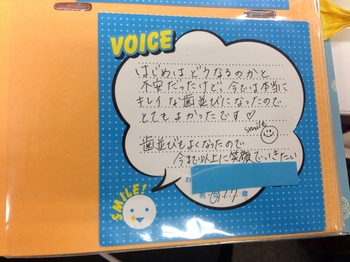 VOICE
はじめはどうなるのかと
不安だったけど、今では本当に
キレイな歯並びになったので
とてもよかったです♡
smile
歯並びもよくなったので
今まで以上に笑顔でいきたい
お
男 女 17 歳
SMILE!